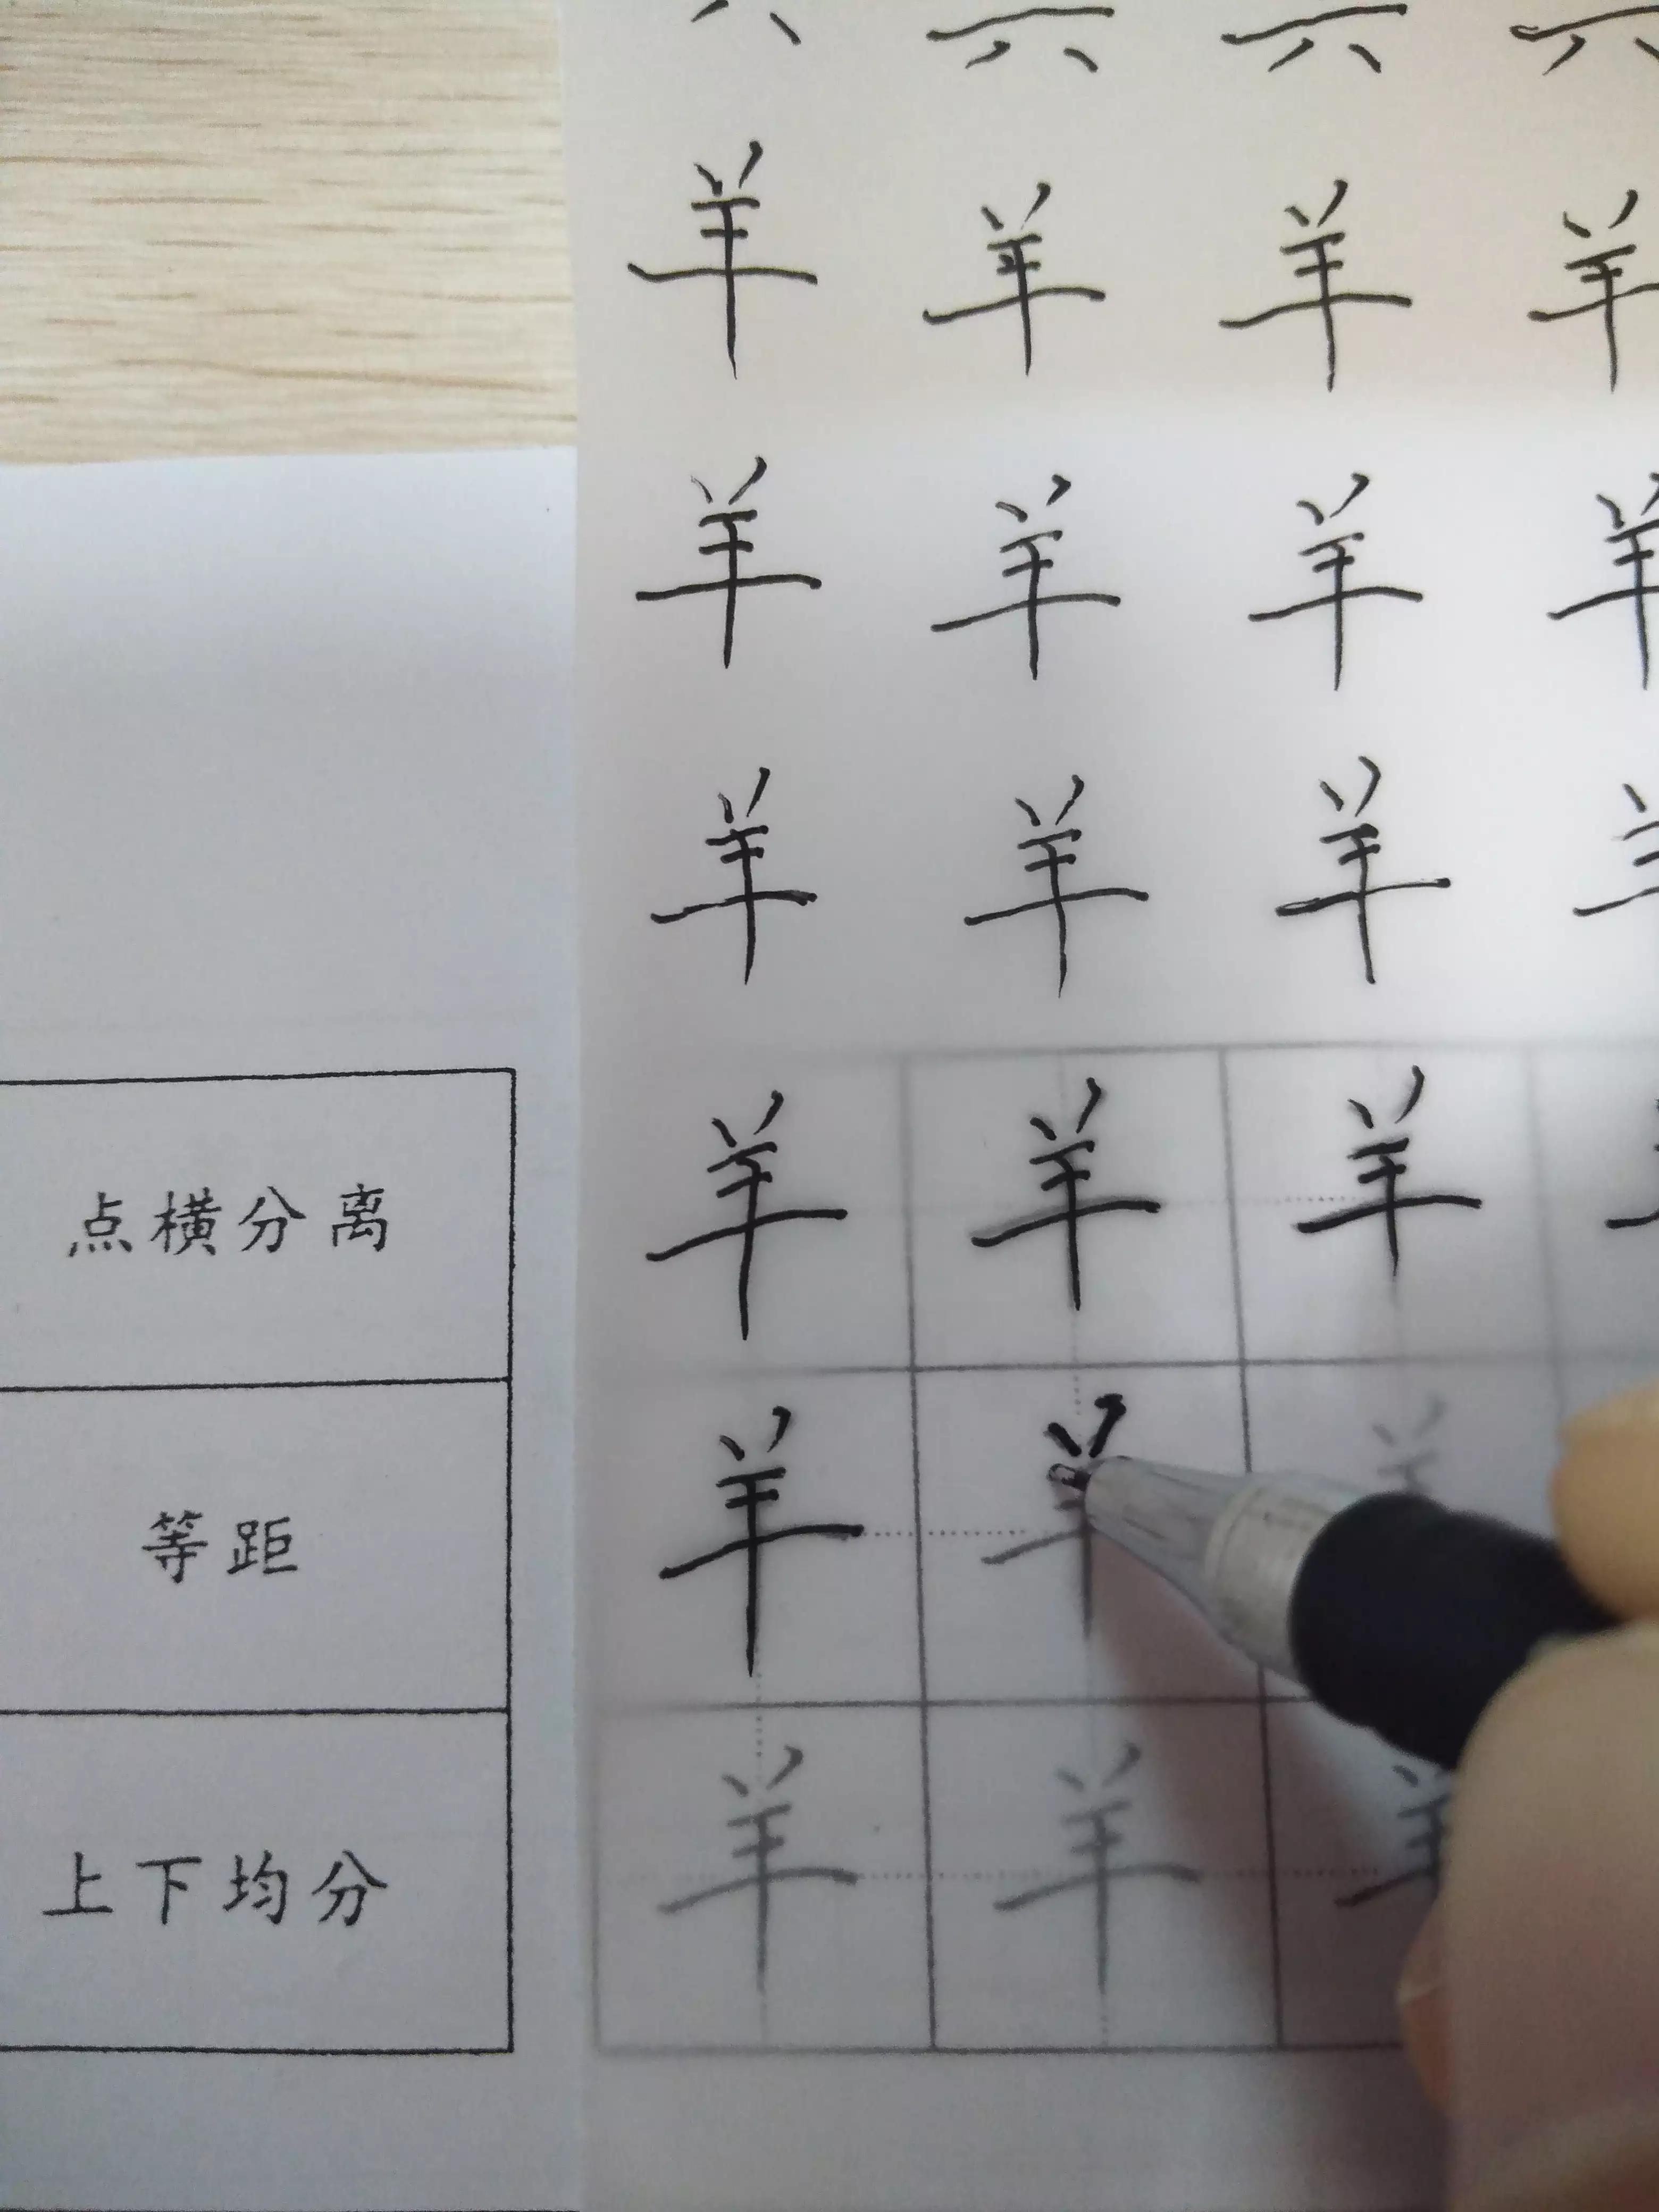 六 六 六 六
羊 羊 羊 羊
羊 羊 羊 羊
羊 羊 羊 羊
点横分离 羊 羊 羊
等距 羊 羊 羊
上下均分 羊 羊 羊